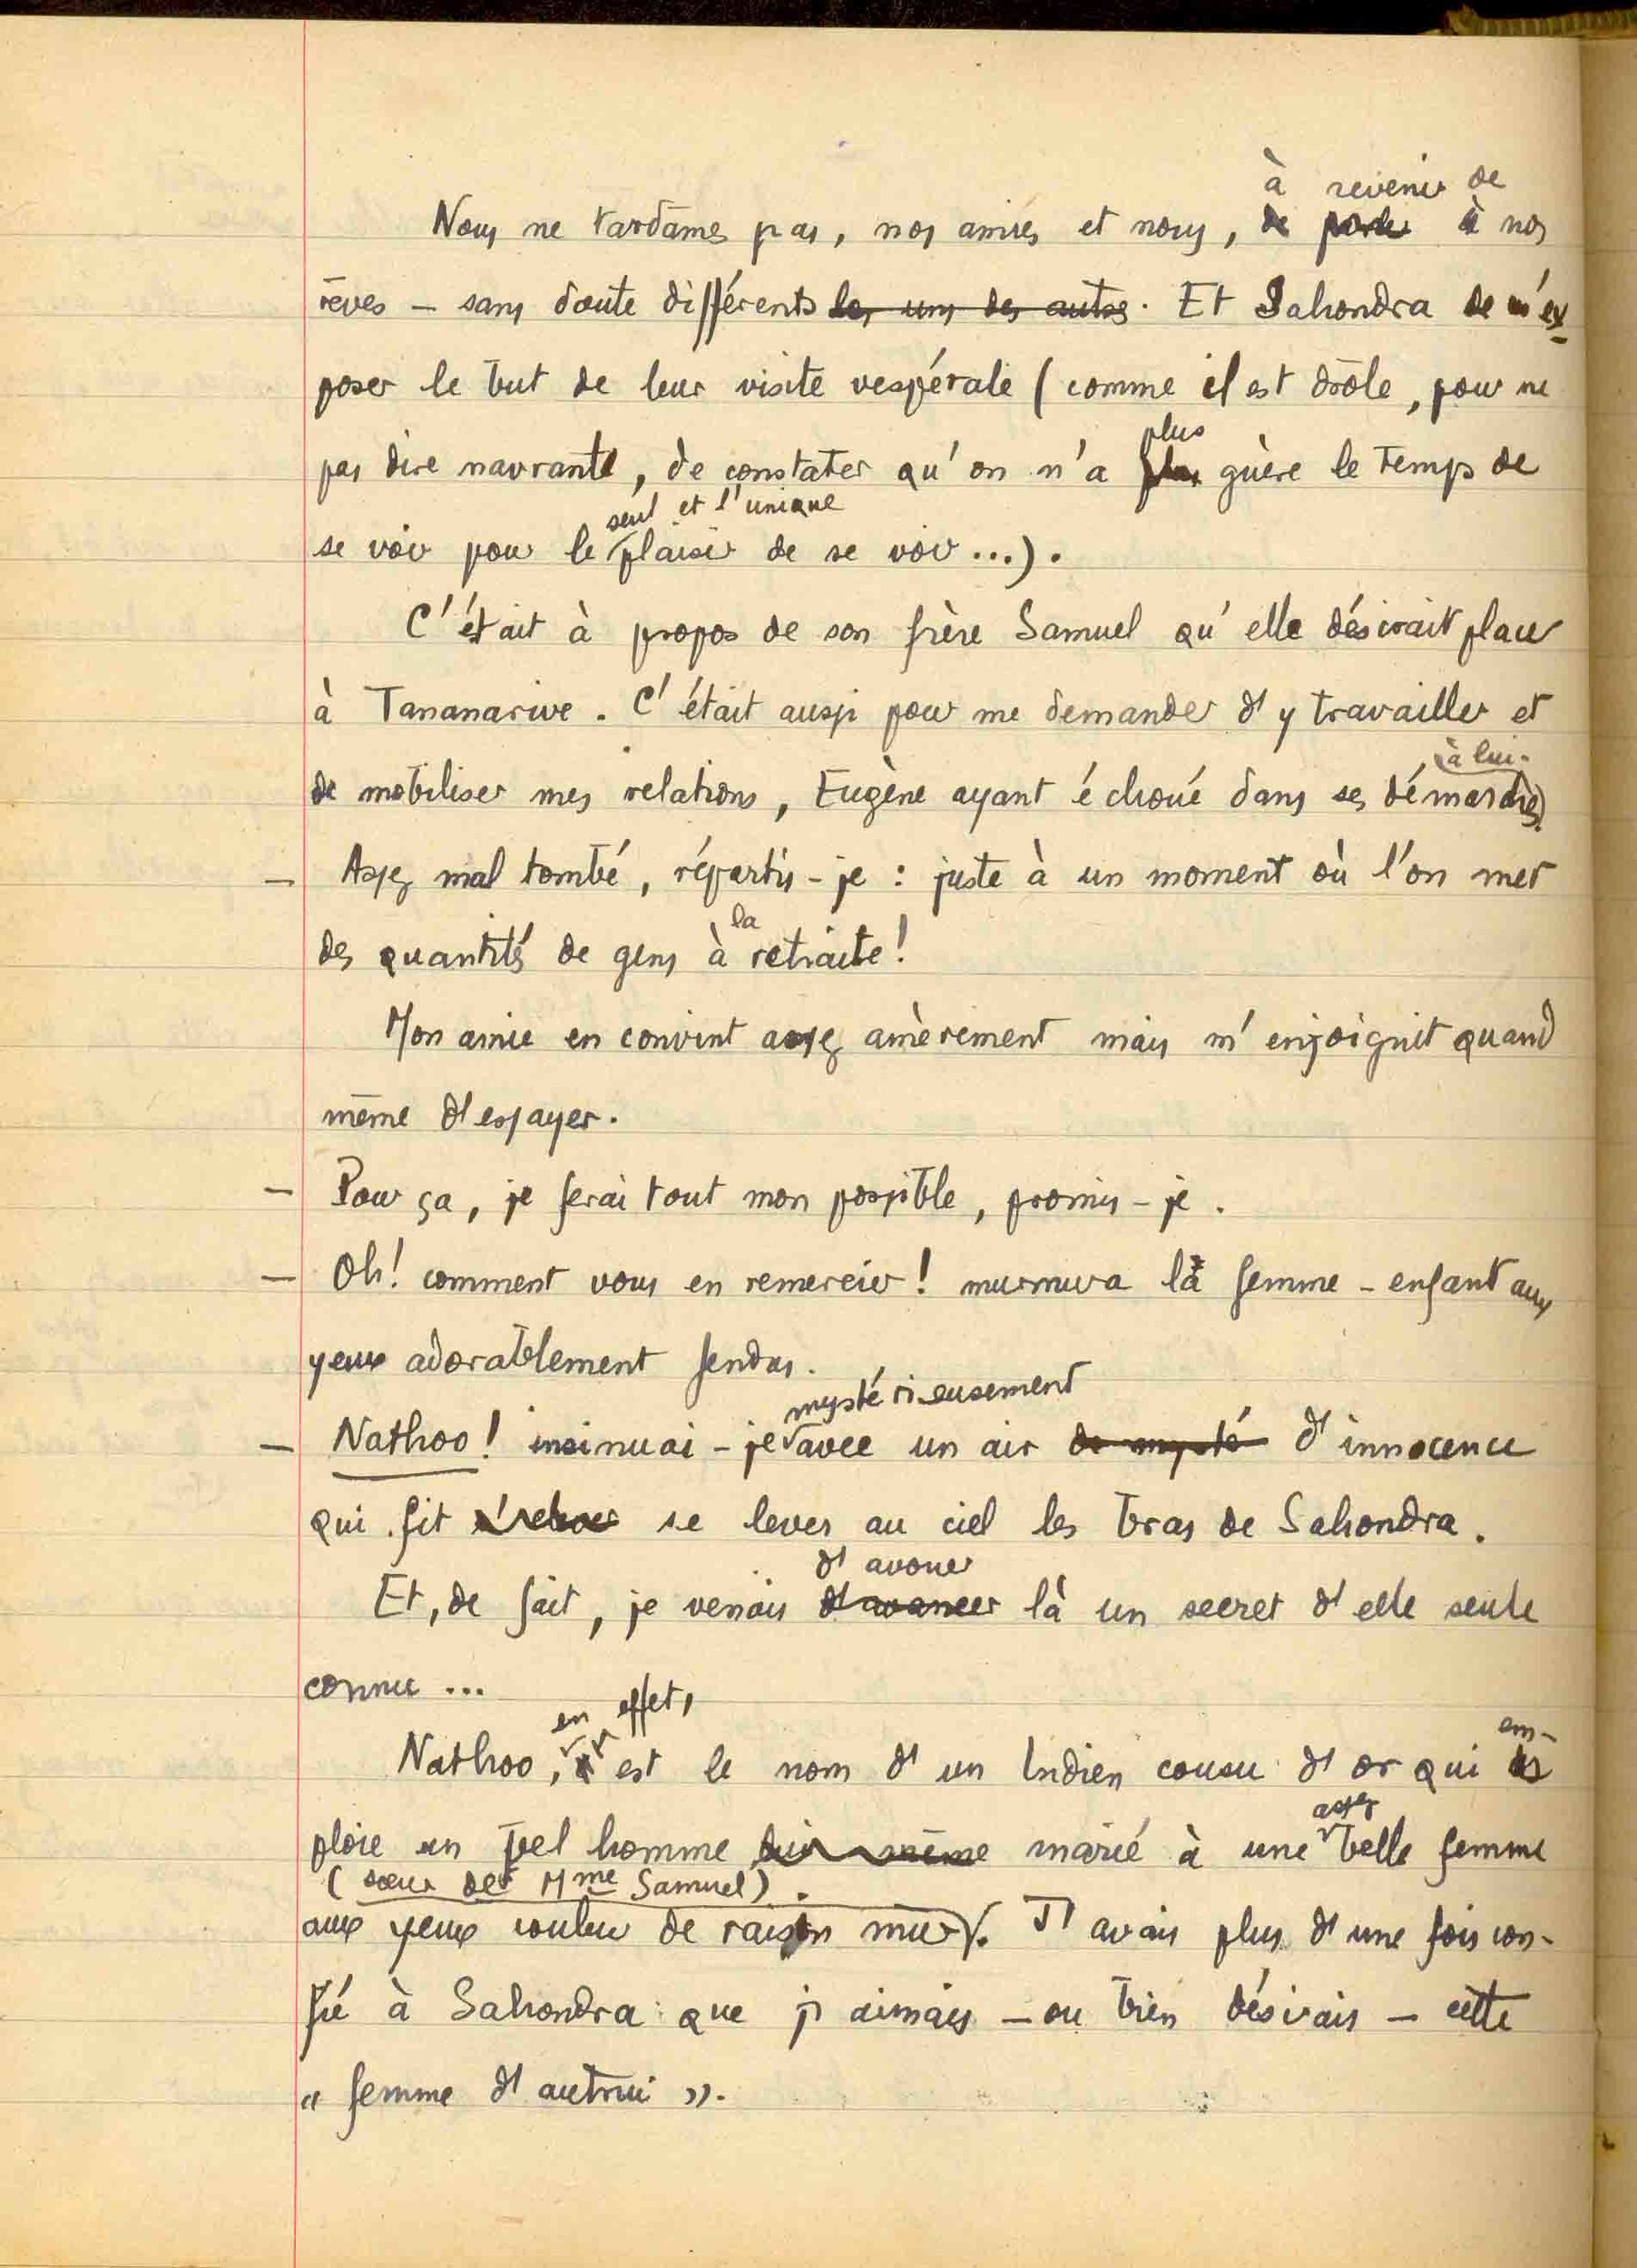 à revenir de
Nous ne tardâmes pas, nos amies et nous, de à nos
rêves – sans doute différents les uns des autres. Et Sahondra de m'ex
poser le but de leur visite vespérale (comme il est drôle, pour ne
plus
pas dire navrant, de constater qu'on n'a plus guère le temps de
seul et l'unique
se voir pour le plaisir de se voir...).
C'était à propos de son frère Samuel qu'elle désirait placer
à Tananarive. C'était aussi pour me demander d'y travailler et
à lui.
de mobiliser mes relations, Eugène ayant échoué dans ses démarches
– Assez mal tombé, répartis-je : juste à un moment où l'on met
la
des quantités de gens à retraite!
Mon amie en convint assez amèrement mais m'enjoignit quand
même d'essayer.
– Pour ça, je ferai tout mon possible, promis-je.
– Oh! comment vous en remercier! murmura la femme-enfant aux
yeux adorablement fendus.
mystérieusement
– Nathoo! insinuai-je avec un air de mysté d'innocence
qui fit se lever au ciel les bras de Sahondra.
d'avouer
Et, de fait, je venais d'avancer là un secret d'elle seule
connu ...
en effet,
em-
Nathoo, est le nom d'un Indien cousu d'or qui
assez
ploie un bel homme lui-même marié à une belle femme
(sœur de Mme Samuel).
aux yeux couleur de raisin mûr. J'avais plus d'une fois con-
fié à Sahondra que j'aimais – ou bien désirais – cette
« femme d'autrui ».